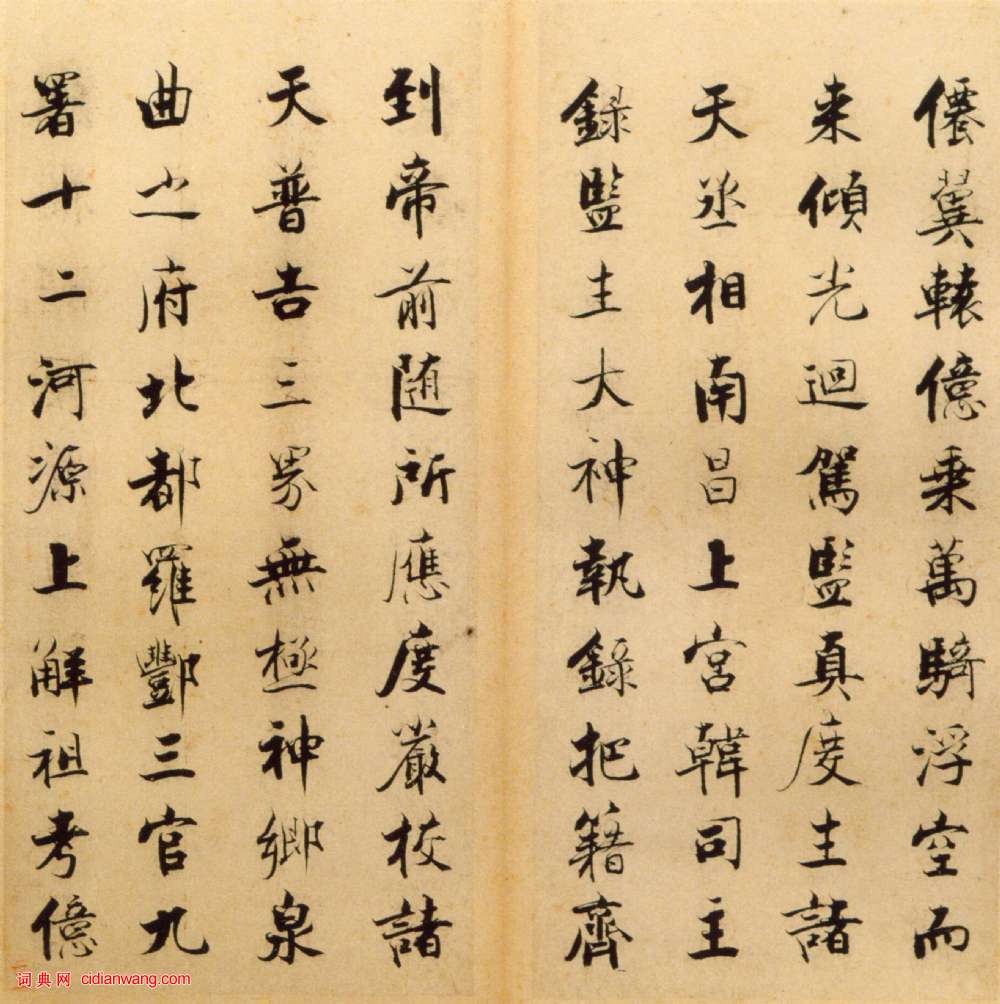 僊翼轅億乗萬騎浮空而
来傾光迴駕監真度主諸
天丞相南昌上宮韓司主
錄監主大神執錄把籍齊
到帝前随所應度嚴校諸
天普告三界無極神鄉泉
曲之府北都羅酆三官九
署十二河源上解祖考億
词典网 cidianwang.com